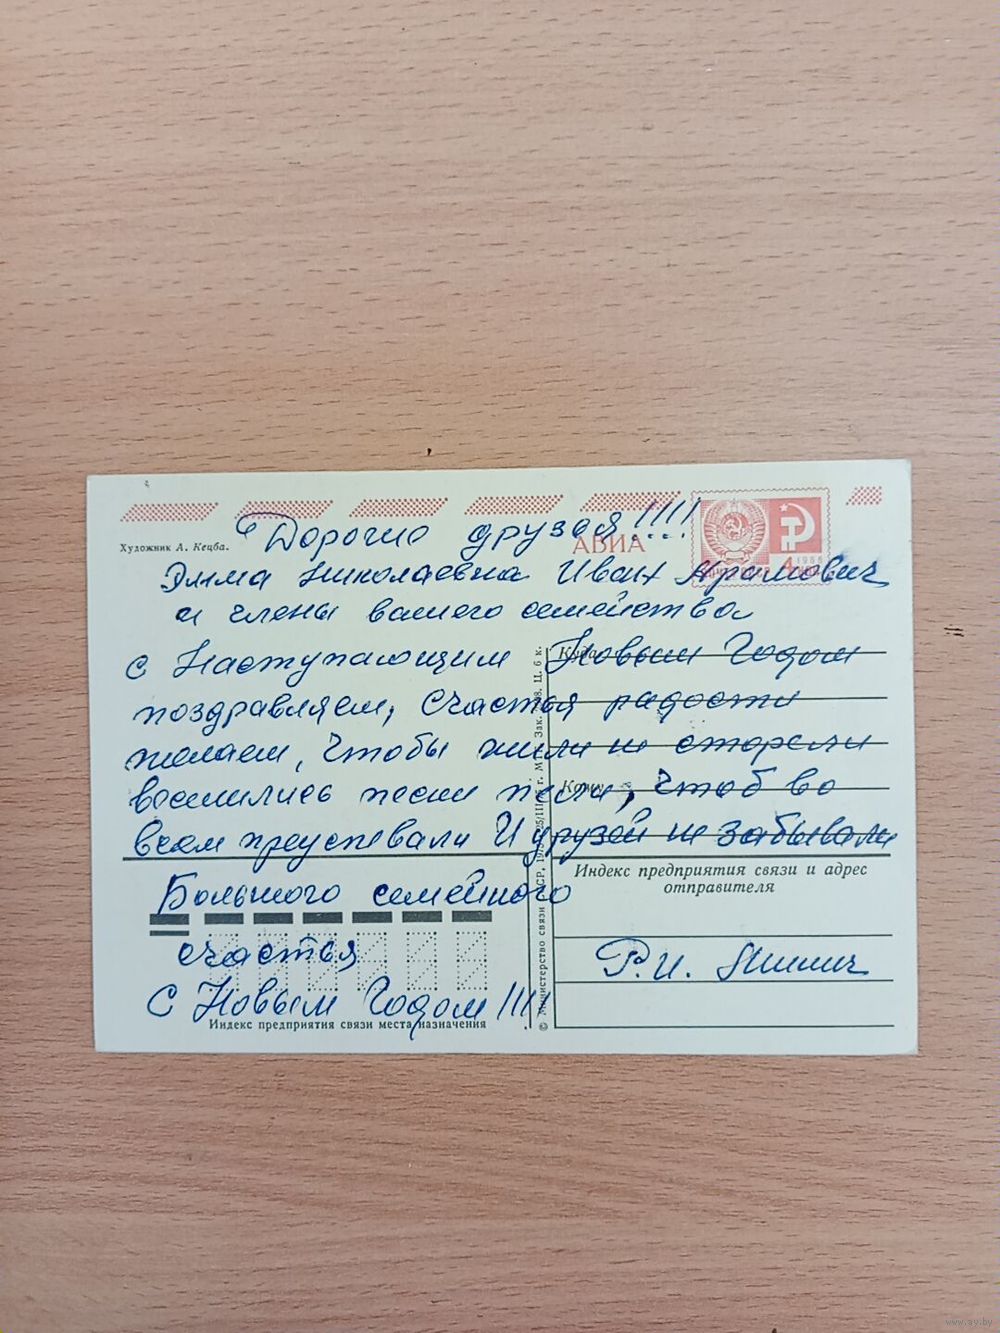 Дорогие друзья!!!!!
АВИА
Художник А. Кецба.
Эмма Николаевна Иван Арамович
и члены вашего семейства
с Наступающим Новым Годом
Куда
поздравляем, Счастья радости
желаем, Чтобы жили не старели
веселились песни пели, Чтоб во
Кому
всем преуспевали И друзей не забывали
Индекс предприятия связи и адрес
отправителя
Большого семейного
счастья
Р.И.
С Новым Годом!!!
Индекс предприятия связи места назначения
© Министерство связи СССР, Зак. Ц. 6 к.
www.ay.by